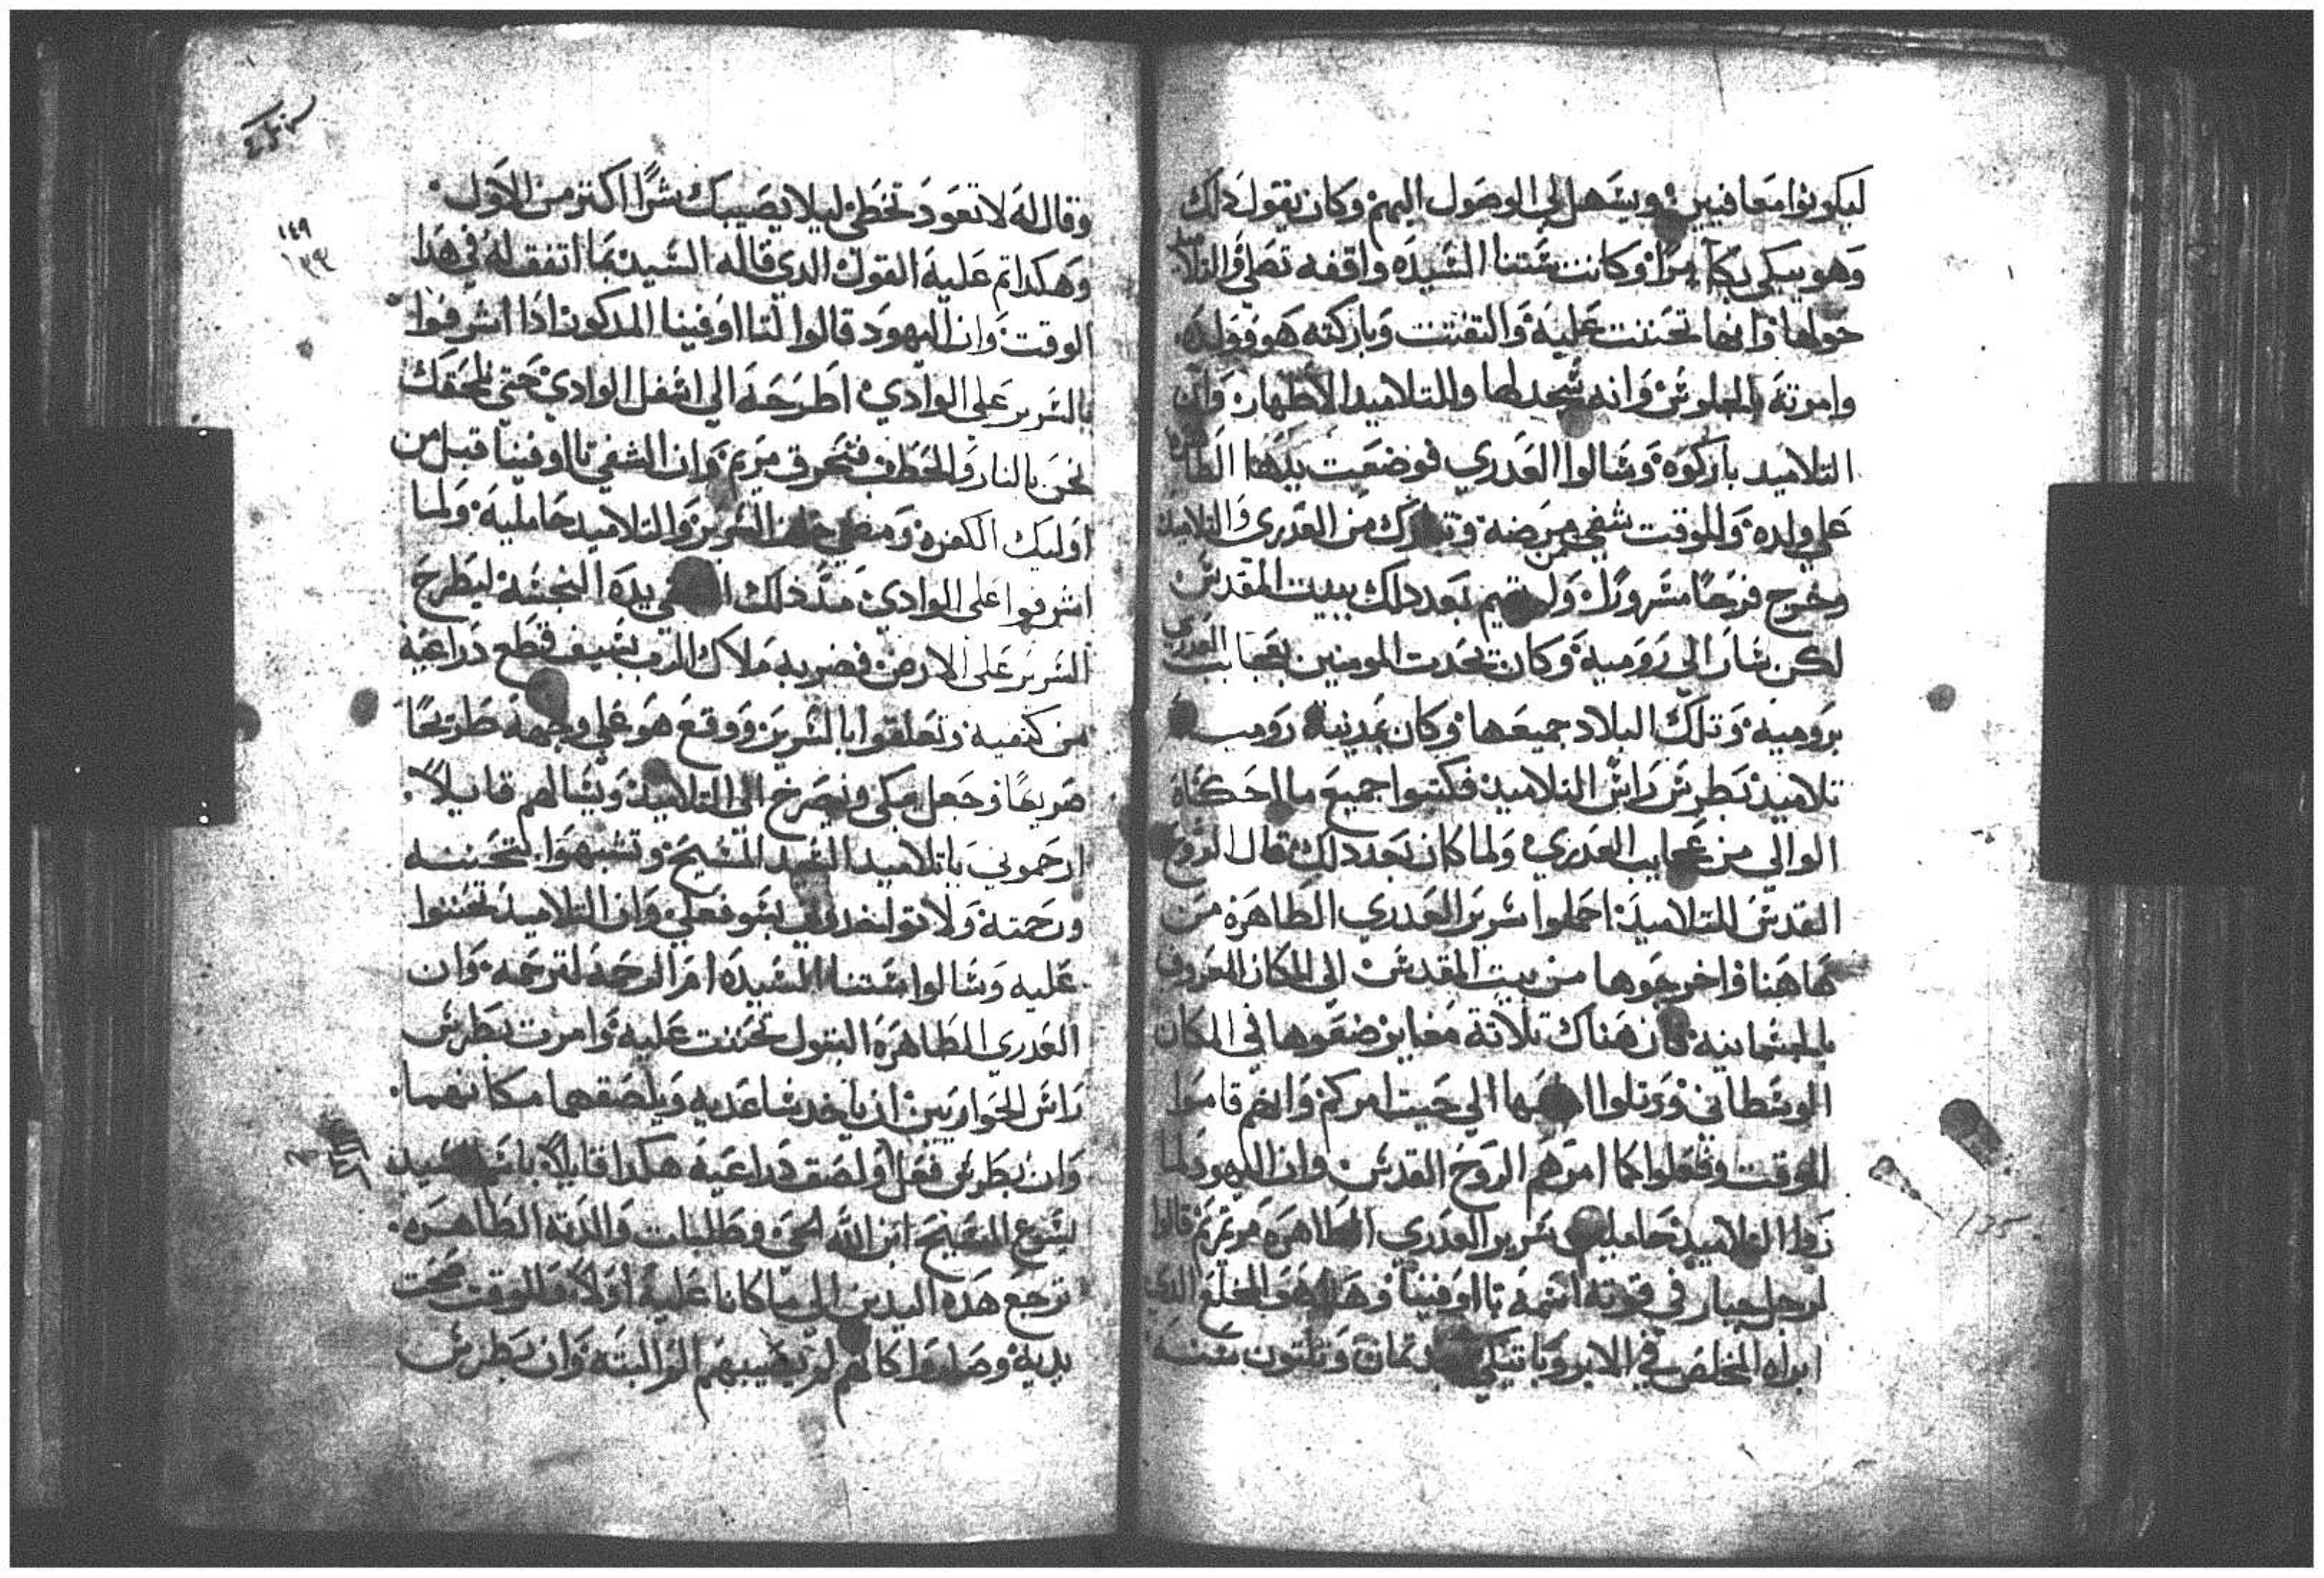 ليكونوا معافيين ويسهل لي الوصول اليهم وكان يقول دلك
وهو يبكي بكاء مرا وكانت ستنا السيده واقفه تصلي والتلاميد
حولها وانها تحننت عليه والتفتت وباركته هو وولده
وامرته بالجلوس وانه سجد لها وللتلاميد الاطهار وان
التلاميد باركوه وسالوا العدري فوضعت يدها الطاهره
علي ولده وللوقت شفي من مرضه وتبارك من العدري والتلاميد
وخرج فرحا مسرورا ولم يقيم بعد دلك ببيت المقدس
لكن سار الي روميه وكان يحدت المومنين بعجايب العدري
بروميه وتلك البلاد جميعها وكان بمدينة روميه
تلاميد بطرس راس التلاميد فكتبوا جميع ما احكاه
الوالي من عجايب العدري ولما كان بعد دلك قال الروح
القدس للتلاميد احملوا سرير العدري الطاهره من
هاهنا واخرجوها من بيت المقدس الي المكان المعروف
بالجسمانيه فان هناك تلاتة مغاير ضعوها في المكان
الوسطاني ورتلوا الي حيت امركم وانهم قاموا
للوقت وفعلوا كما امرهم الروح القدس وان اليهود لما
راوا التلاميد حاملين سرير العدري الطاهره مريم قالوا
لرجل جبار في قوته اسمه تااوفينا وهدا هو المخلع الدي
ابراه المخلص في الابروباتيكي تمان وتلتون سنه
وقال له لا تعود تخطي ليلا يصيبك شرا اكتر من الاول
وهكدا تم عليه القول الدي قاله السيد بما اتفق له في هدا
الوقت وان اليهود قالوا لتااوفينا المدكور ادا اشرفوا
بالسرير علي الوادي اطرحه الي اسفل الوادي حتي نلحقك
نحن بالنار والحطب فنحرق مريم وان الشقي تااوفينا قبل من
اوليك الكفره ومضي خلف السرير والتلاميد حامليه ولما
اشرفوا علي الوادي مد دلك الشقي يده النجسه ليطرح
السرير علي الارض فضربه ملاك الرب بسيف قطع دراعيه
من كتفيه وتعلقوا بالسرير ووقع هو علي وجهه طريحا
صريعا وجعل يبكي ويصرخ الي التلاميد ويسالهم قايلا
ارحموني ياتلاميد السيد المسيح وتشبهوا بتحننه
ورحمته ولا تواخدوني بسو فعلي وان التلاميد تحننوا
عليه وسالوا ستنا السيده ام الرحمه لترحمه وان
العدري الطاهره البتول تحننت عليه وامرت بطرس
راس الحواريين ان ياخد ساعديه ويلصقهما مكانهما
وان بطرس فعل ولصق دراعيه هكدا قايلا باسم السيد
يسوع المسيح ابن الله الحي وطلبات والدته الطاهره
ترجع هده اليدين الي ما كانا عليه اولا وللوقت صحت
يديه وصاروا كانهم لم يصيبهم الم البته وان بطرس
١٤٩